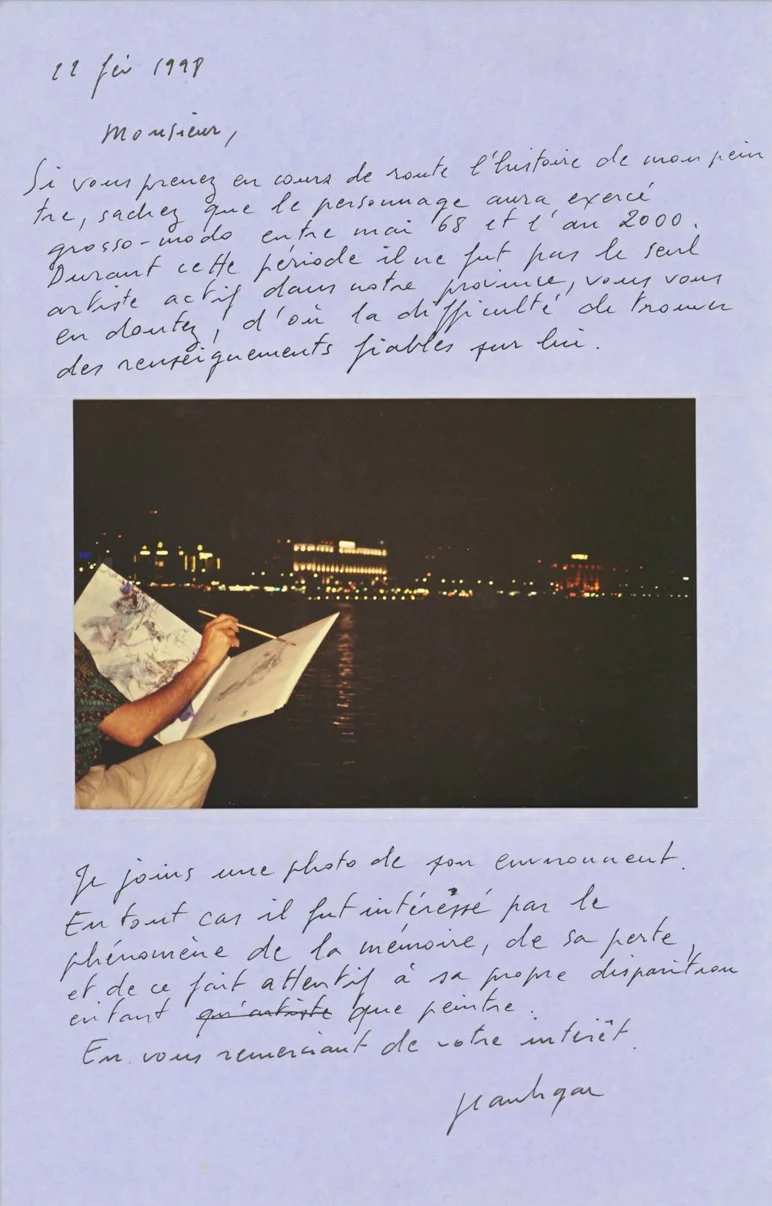 22 fév 1998
Monsieur,
Si vous prenez en cours de route l'histoire de mon pein
tre, sachez que le personnage aura exercé
grosso-modo entre mai 68 et l'an 2000.
Durant cette période il ne fut pas le seul
artiste actif dans notre province, vous vous
en doutez, d'où la difficulté de trouver
des renseignements fiables sur lui.
Je joins une photo de son environnement.
En tout cas il fut intéressé par le
phénomène de la mémoire, de sa perte,
et de ce fait attentif à sa propre disparition
en tant qu'artiste que peintre.
En vous remerciant de votre intérêt.